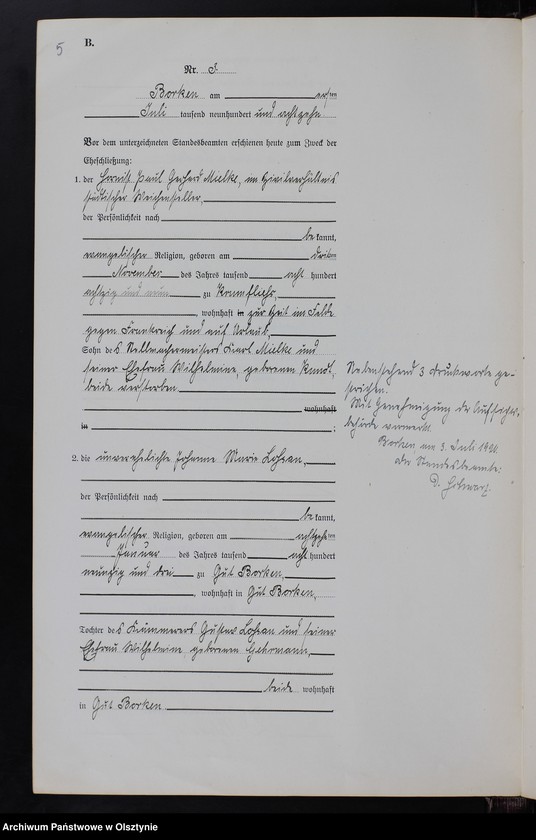 5
B.
Nr.
Borken am ersten
Juli tausend neunhundert und achtzehn
Vor dem unterzeichneten Standesbeamten erschienen heute zum Zweck der
Eheschließung:
1. der Paul Gerhard Mielke, im Zivilverhältnis
städtischer Weichensteller,
der Persönlichkeit nach
be kannt,
evangelischer Religion, geboren am dritten
November des Jahres tausend acht hundert
achtzig und neun zu
, wohnhaft in zur Zeit im Felde
gegen Frankreich und auf Urlaub,
Sohn des Stellmachermeisters Karl Mielke und
seiner Ehefrau Wilhelmine, geborenen
beide verstorben
wohnhaft
in ;
Nebenstehend 3 Druckworte ge-
strichen.
Mit Genehmigung der Aufsichts-
behörde vermerkt.
Borken, am 3. Juli 1920.
Der Standesbeamte:
2. die unverehelichte Johanne Marie
der Persönlichkeit nach
be kannt,
evangelischer Religion, geboren am achtzehnten
Januar des Jahres tausend acht hundert
neunzig und drei zu Gut Borken,
, wohnhaft in Gut Borken,
Tochter des Kämmerers Gustav und seiner
Ehefrau Wilhelmine, geborenen Gehrmann,
beide wohnhaft
in Gut Borken
Archiwum Państwowe w Olsztynie